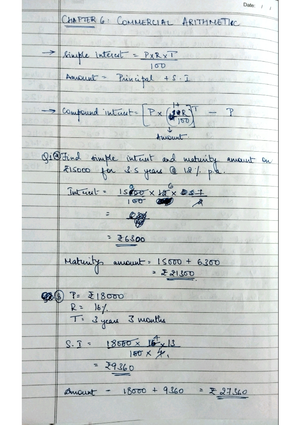 Date:
CHAPTER 6: COMMERCIAL ARITHMETIC
→ Simple Interest = P×R×T
100
Amount = Principal + S.I
→ Compound interest = [P × (1+R
100)]T - P
Amount
Q.1 a Find simple interest and maturity amount on
₹15000 for 3.5 years @ 12% p.a.
Interest = 15000 × 12 × 7
100 2
=
= ₹6300
Maturity amount = 15000 + 6300
= ₹21300
b P = ₹18000
R = 16%
T = 3 years 3 months
S.I = 18000 × 16 × 13
100 × 4
= ₹9360
Amount - 18000 + 9360 = ₹27360